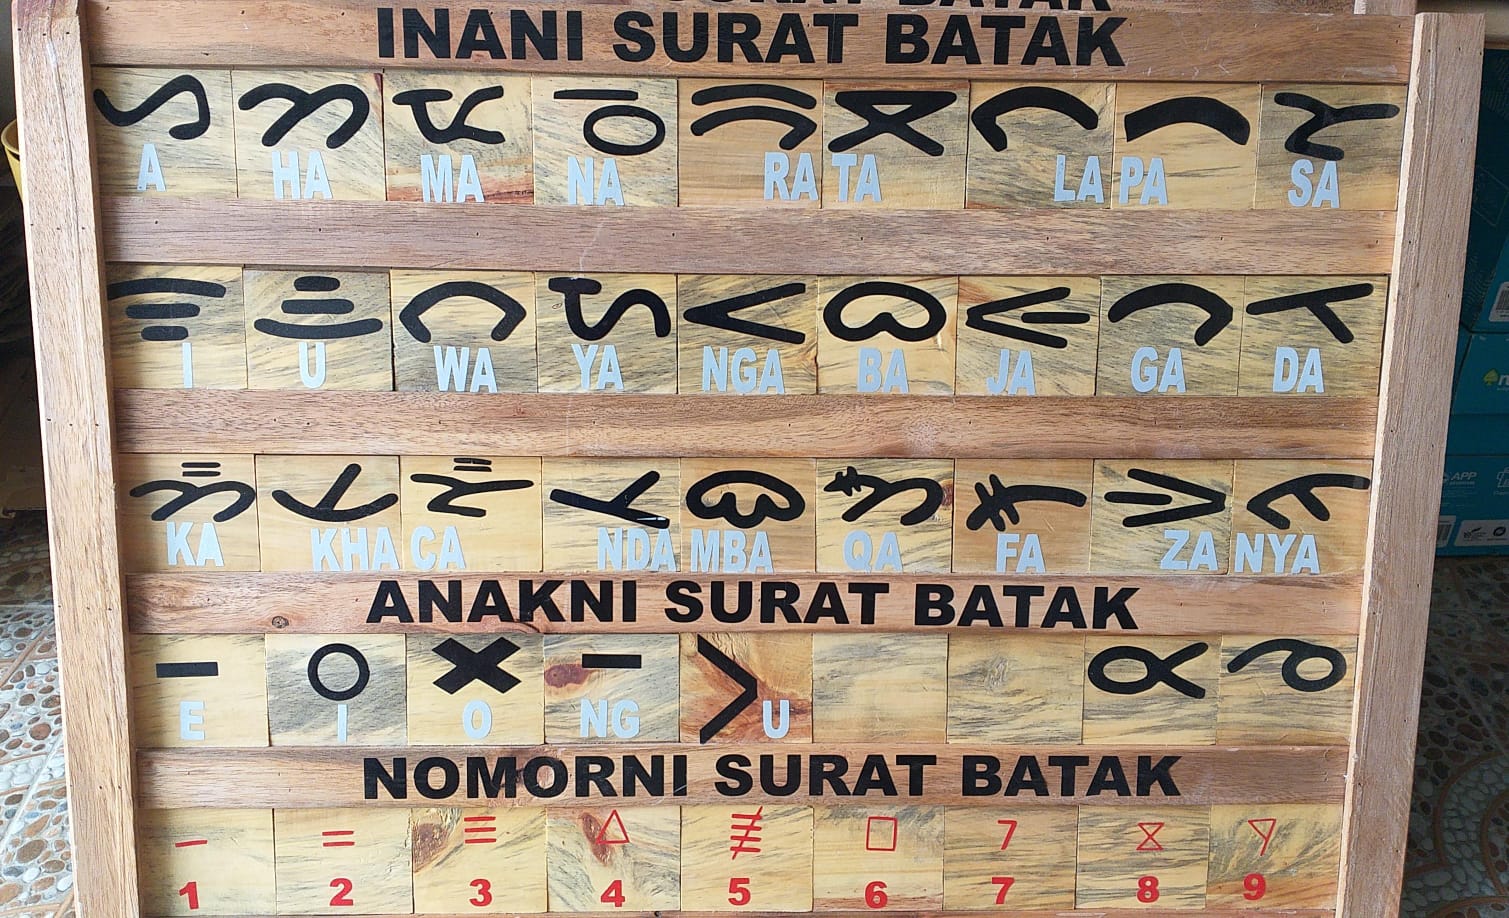 SURAT BATAK
INANI SURAT BATAK
ᯀ ᯂ ᯔ ᯉ ᯒ ᯖ ᯞ ᯇ ᯘ
A HA MA NA RA TA LA PA SA
ᯤ ᯥ ᯋ ᯛ ᯝ ᯅ ᯐ ᯎ ᯑ
I U WA YA NGA BA JA GA DA
ᯂ᯦ ᯘ᯦ ᯢ ᯣ ᯠ
KA KHA CA NDA MBA QA FA ZA NYA
ANAKNI SURAT BATAK
E I O NG U
NOMORNI SURAT BATAK
1 2 3 4 5 6 7 8 9